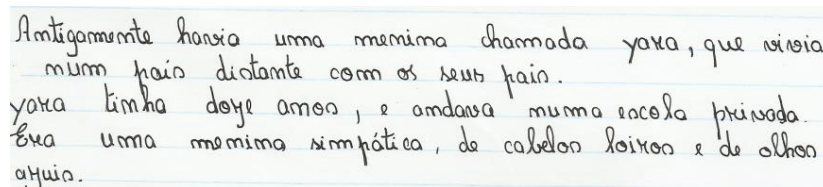 Antigamente havia uma menina chamada yara, que vivia
num país distante com os seus pais.
yara tinha doze anos, e andava numa escola privada.
Era uma menina simpática, de cabelos loiros e de olhos
azuis.